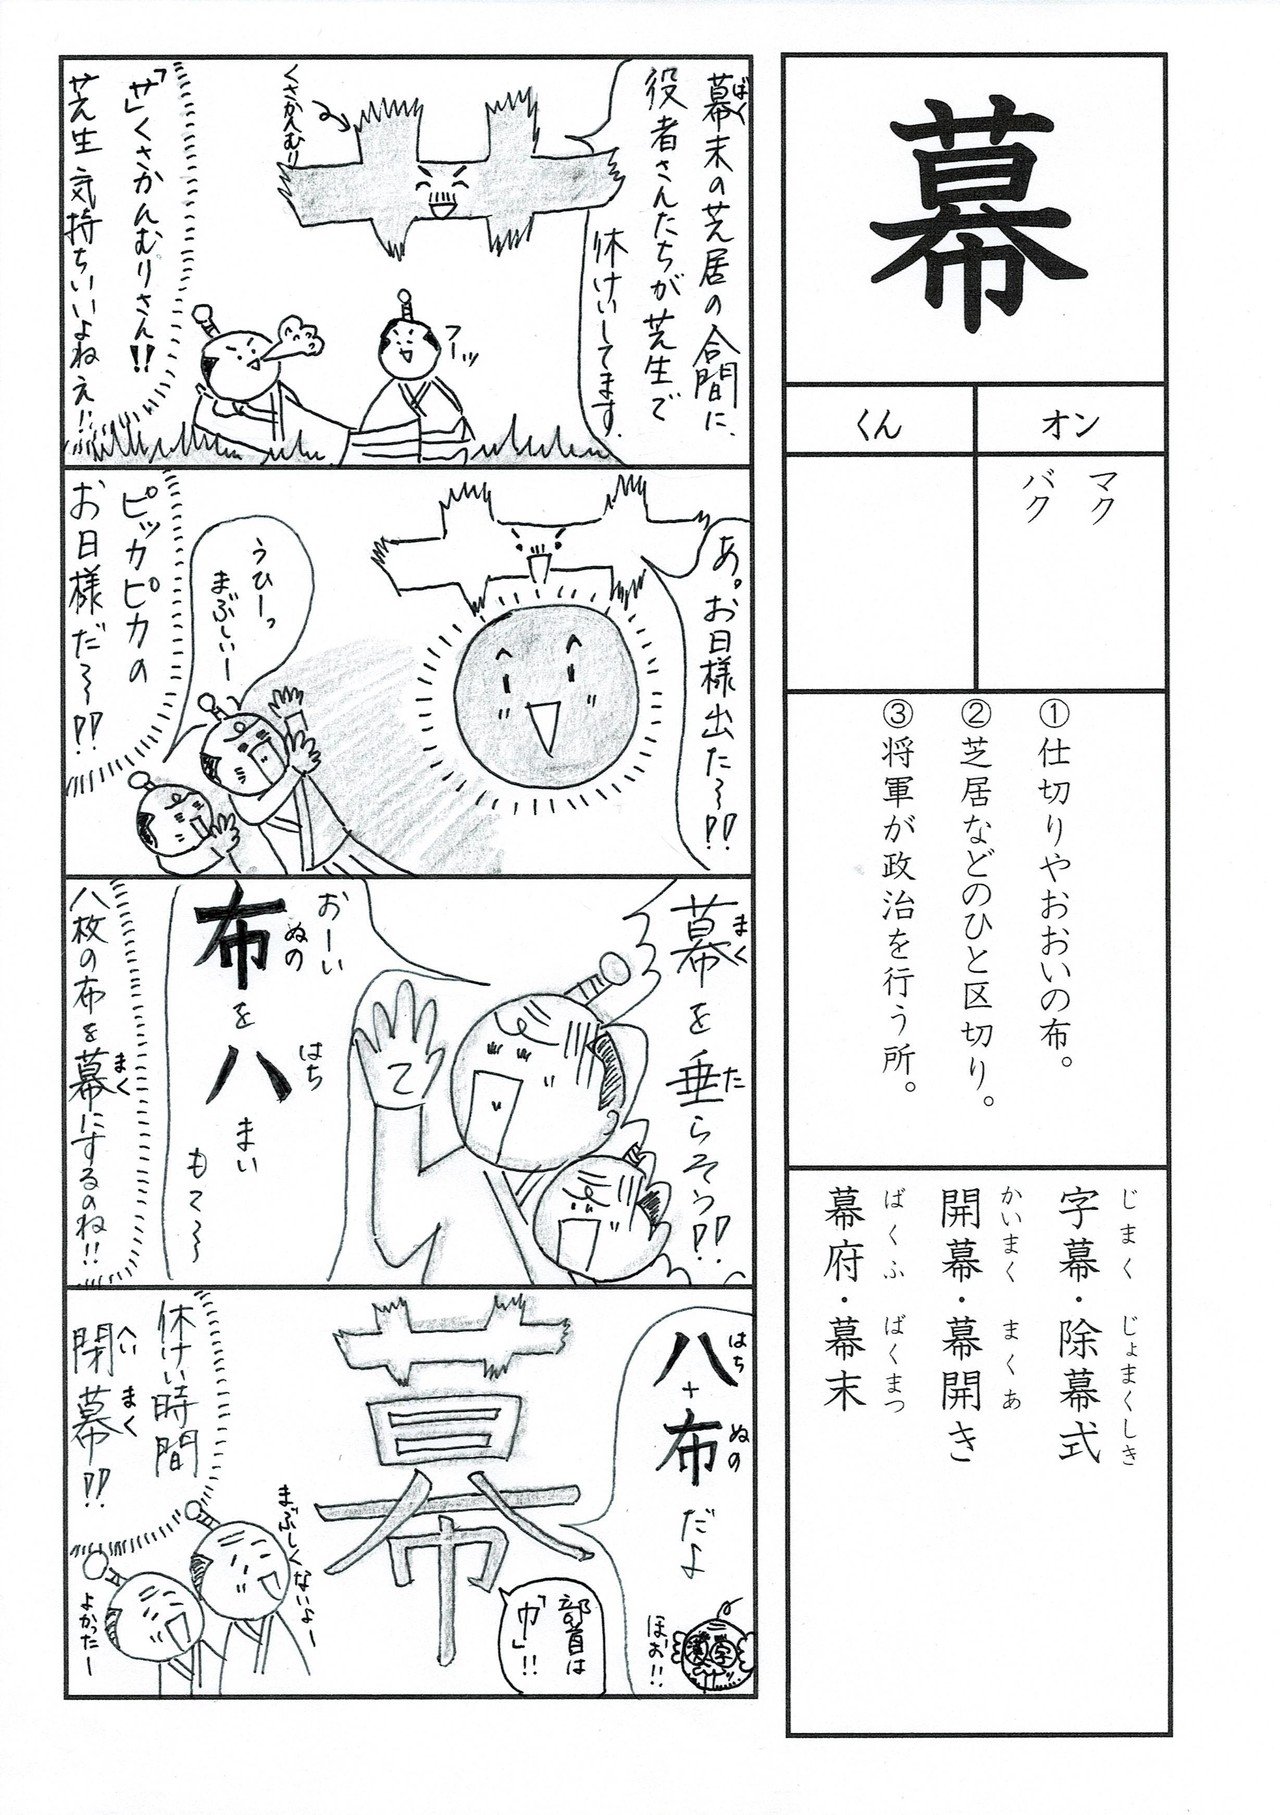 幕
オン
くん
マク
バク
①仕切りやおおいの布。
②芝居などのひと区切り。
③将軍が政治を行う所。
じまく じょまくしき
字幕・除幕式
かいまく まくあ
開幕・幕開き
ばくふ ばくまつ
幕府・幕末
ばく
幕末の芝居の合間に、
役者さんたちが芝生で
休けいしてます。
くさかんむり
フーッ
「艹」くさかんむりさん!!
芝生気持ちいいよねえ!!
あ。お日様出た〜!!
うひーっ
まぶしいー
ピッカピカの
お日様だ〜!!
まく た
幕を垂らそう!!
おーい
ぬの
布を
はち
八まい
もて〜
まく
八枚の布を幕にするのね!!
はち ぬの
八+布だよ
ほお!!
漢字
幕
部首は
「巾」!!
まぶしくないよー
よかったー
休けい時間
へい まく
閉幕!!